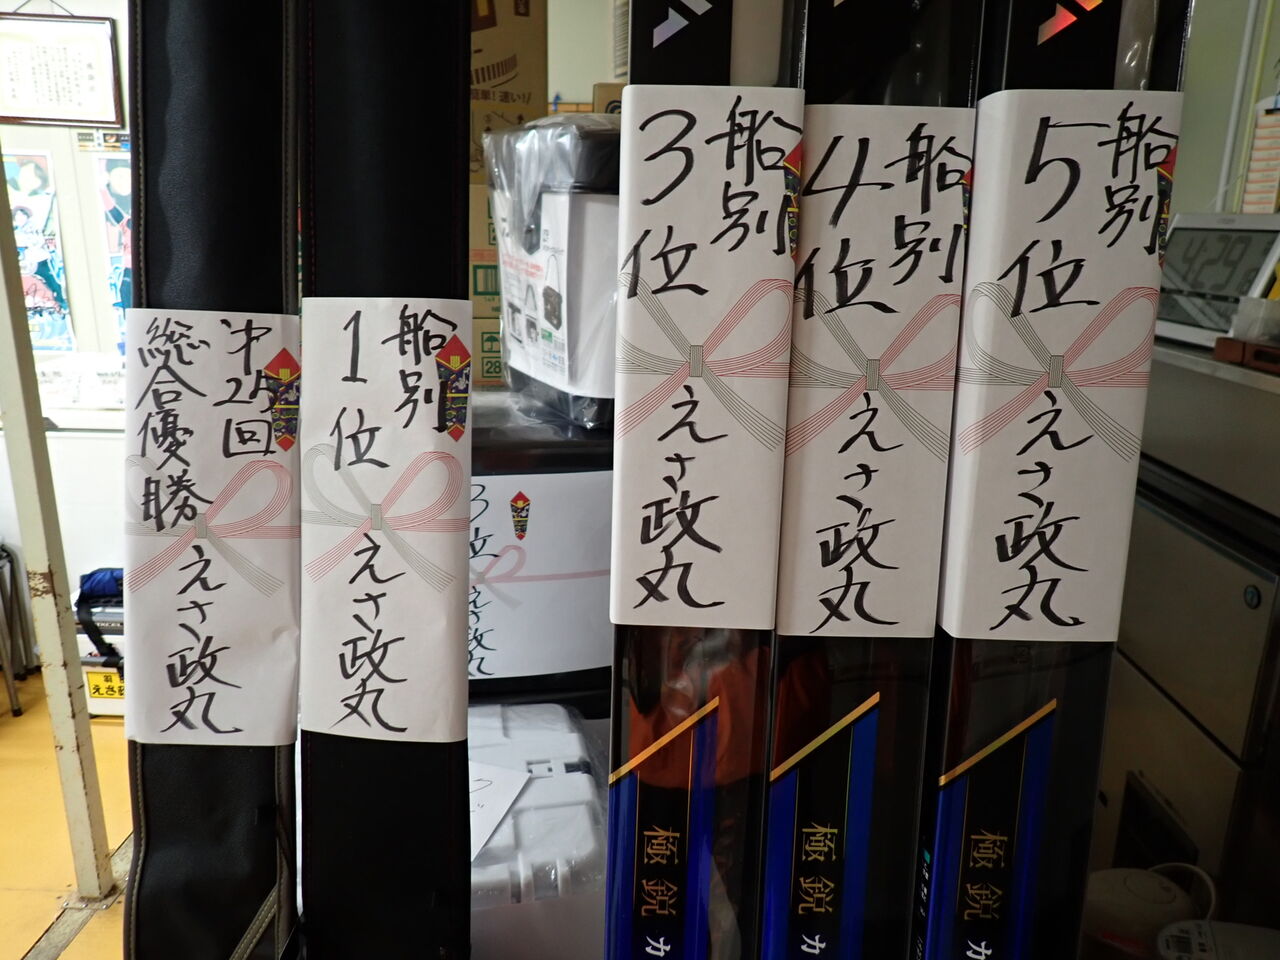 第25回
総合優勝
えさ政丸
船別
1位
えさ政丸
3位
えさ政丸
船別
3位
えさ政丸
船別
4位
えさ政丸
船別
5位
えさ政丸
極鋭 カ
極鋭 カ
極鋭 カ
簡単!速い!
28
4:29
えさ政